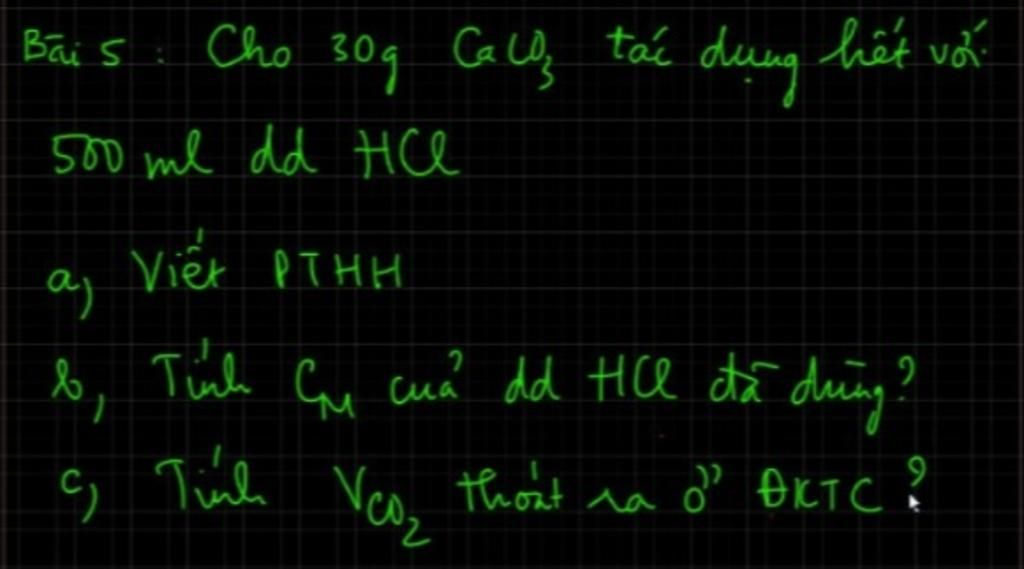 Bài 5 : Cho 30g CaCO₃ tác dụng hết với
500 ml dd HCl
a, Viết PTHH
b, Tính C_M của dd HCl đã dùng?
c, Tính V_CO₂ thoát ra ở ĐKTC?